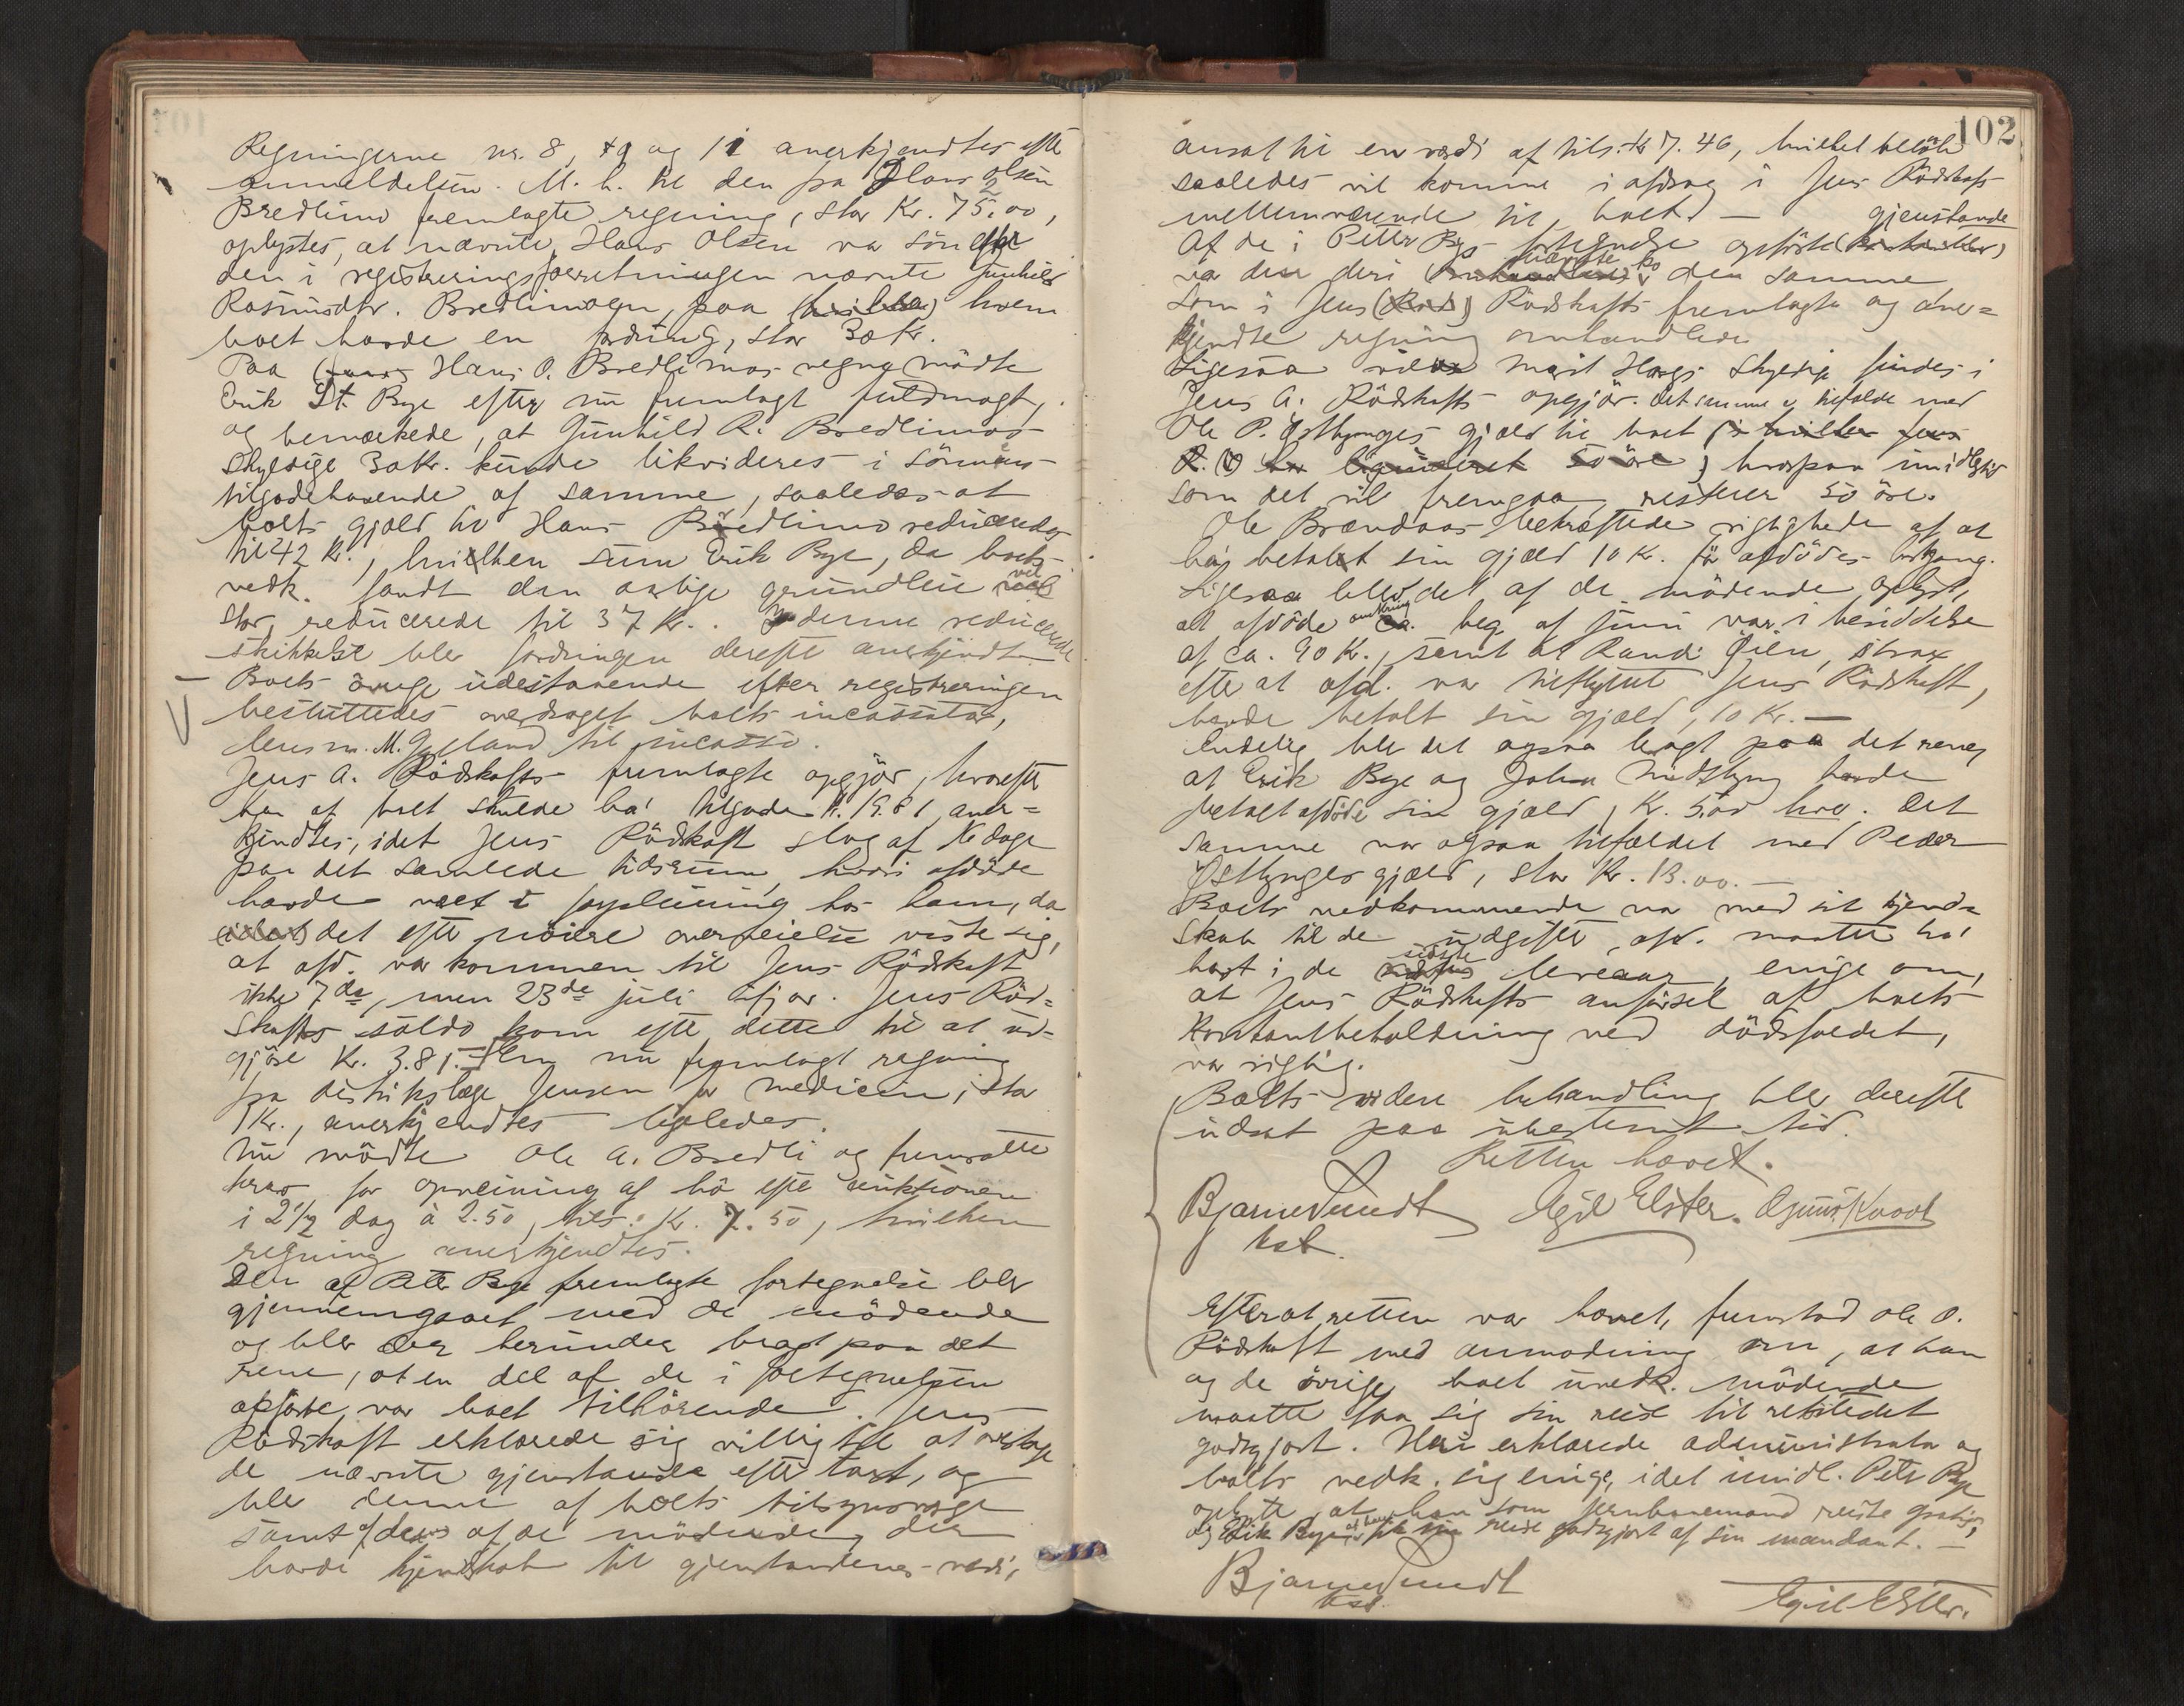 Regningerne nr. 8, 9 og 11 anerkjendtes efter
anmeldelsen. M. h. til den fra Hans Olsen
Bredlimo fremlagte regning, stor Kr. 75,00,
oplystes, at nævnte Hans Olsen var søn
den i registreringsforretningen nævnte Gunhild
Rasmusdtr. Bredlimoen, paa (hvilken) hvem
boet havde en fordring, stor 30 Kr.
Paa Hans O. Bredlimos vegne mødte
Erik St. Bye efter nu fremlagt fuldmagt,
og bemærkede, at Gunhild R. Bredlimos
skyldige 30 Kr. kunde likvideres i sønnens
tilgodehavende af samme, saaledes at
boets gjæld til Hans Bredlimo reduceredes
til 42 Kr., hvilken sum Erik Bye, da boets
vedk. fandt den aarlige grundleie vel
stor, reducerede til 37 Kr. I denne reducerede
skikkelse blev fordringen derefter anerkjendt.
— Boets øvrige udestaaende efter registreringen
besluttedes overdraget boets incassator,
lensm. M. Gjelland til incasso.
Jens A. Rødskafts fremlagte opgjør, hvorefter
han af boet skulde ha' tilgode Kr. 19.81, aner-
kjendtes, idet Jens Rødskaft slog af 16 dage
paa det samlede tidsrum, hvori afdøde
havde været i forpleining hos ham, da
(idet) det efter nøiere overveielse viste sig,
at afd. var kommen til Jens Rødskaft
ikke 7de, men 23de juli ifjor. Jens Rød-
skafts saldo kom efter dette til at ud-
gjøre Kr. 3.81. — En nu fremlagt regning
fra distriktslæge Jensen for medicin, stor
1 Kr., anerkjendtes ligeledes.
Nu mødte Ole A. Bredli og fremsatte
krav for opveining af hø efter auktionen
i 2 1/2 dag à 2.50, tils. Kr. 7.50, hvilken
regning anerkjendtes.
Den af Peter Bye fremlagte fortegnelse blev
gjennemgaaet med de mødende
og blev der herunder bragt paa det
rene, at en del af de i fortegnelsen
opførte var boet tilhørende. Jens
Rødskaft erklærede sig villig til at overtage
de nævnte gjenstande efter taxt, og
blev denne af boets tilsynsværge
samt af de mødende, der
havde kjendskab til gjenstandenes værdi,
102
ansat til en værdi af tils. Kr 7.46, hvilket beløb
saaledes vil komme i afdrag i Jens Rødskafts
mellemværende til boet. —
gjenstande
Af de i Petter Byes fortegnelse opførte
nævnte ko
var den deri den samme
som i Jens (Rød) Rødskafts fremlagte og aner-
kjendte regning omhandlede
Ligesaa Marit Haugs skyldige findes i
Jens A. Rødskafts opgjør. Det samme er tilfælde med
Ole P. Østlyngs gjæld til boet (i hvilken Jens
R. har likvideret 50 øre) hvorpaa imidlertid
som det vil fremgaa, resterer 50 øre.
Ole Brændaas bekræftede rigtigheden af at
ha' betalt sin gjæld 10 Kr. før afdødes bortgang.
Ligesaa blev det af de mødende oplyst,
at afdøde omkring beg. af juni var i besiddelse
af ca. 90 Kr., samt at Randi Øien, strax
efter at afd. var tilflyttet Jens Rødskaft,
havde betalt sin gjæld, 10 Kr. —
Endelig blev det ogsaa bragt paa det rene,
at Erik Bye og John Midtlyng havde
betalt afdøde sin gjæld, Kr. 5,00 hver. Det
samme var ogsaa tilfældet med Peder
Østlyngs gjæld, stor Kr. 13.00. —
Boets vedkommende var med sit kjend-
skab til de udgifter, afd. maatte ha'
havt i de sidste leveaar, enige om,
at Jens Rødskafts anførsel af boets
kontantbeholdning ved dødsfaldet,
var rigtig.
Boets videre behandling blev derefter
udsat paa ubestemt tid.
Retten hævet.
Bjarne Sundt Egil Elster.
kst.
Efterat retten var hævet, fremstod Ole O.
Rødskaft med anmodning om, at han
og de øvrige boet uvedk. mødende
maatte faa sig sin reise til retstedet
godtgjort. Heri erklærede administrator og
boets vedk. sig enige, idet imidl. Peter Bye
oplyste, at han som jernbanemand reiste gratis,
og Erik Bye, at han fik sin reise godtgjort af sin mandant. —
Bjarne Sundt
kst.
Egil Elster.